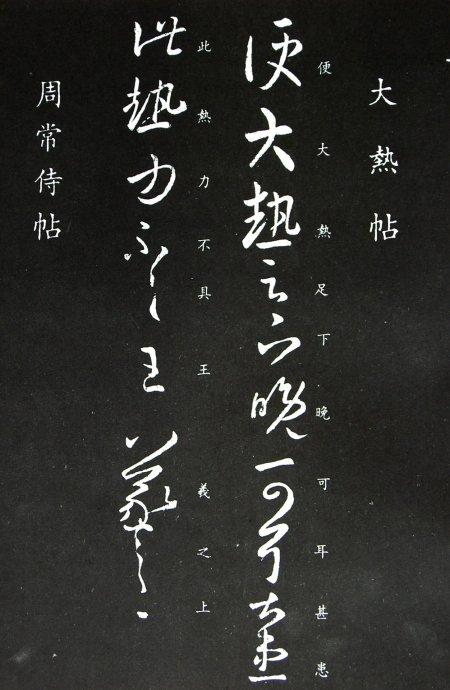 大熱帖
便大熱足下晚可耳甚患
便大熱足下晚可耳甚患
此熱力不具王羲之上
此熱力不具王羲之上
周常侍帖